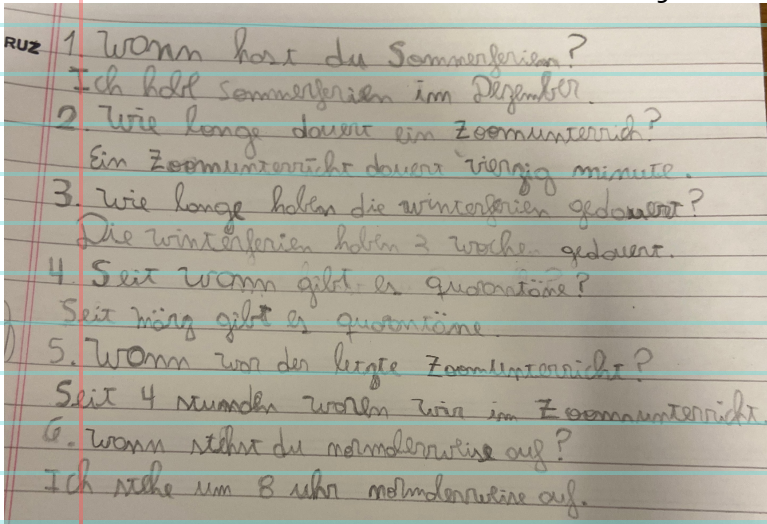 RUZ 1. Wann hast du Sommerferien?
Ich habe Sommerferien im Dezember.
2. Wie lange dauert ein Zoomunterrich?
Ein Zoomunterricht dauert vierzig minute.
3. Wie lange haben die winterferien gedauert?
Die winterferien haben 2 woche gedauert.
4. Seit wann gibt es quarantäne?
Seit märz gibt es quarantäne
5. Wann war der letzte Zoomunterricht?
Seit 4 stunden waren wir im Zoomunterricht.
6. Wann stehst du auf?
Ich stehe um 8 uhr auf.